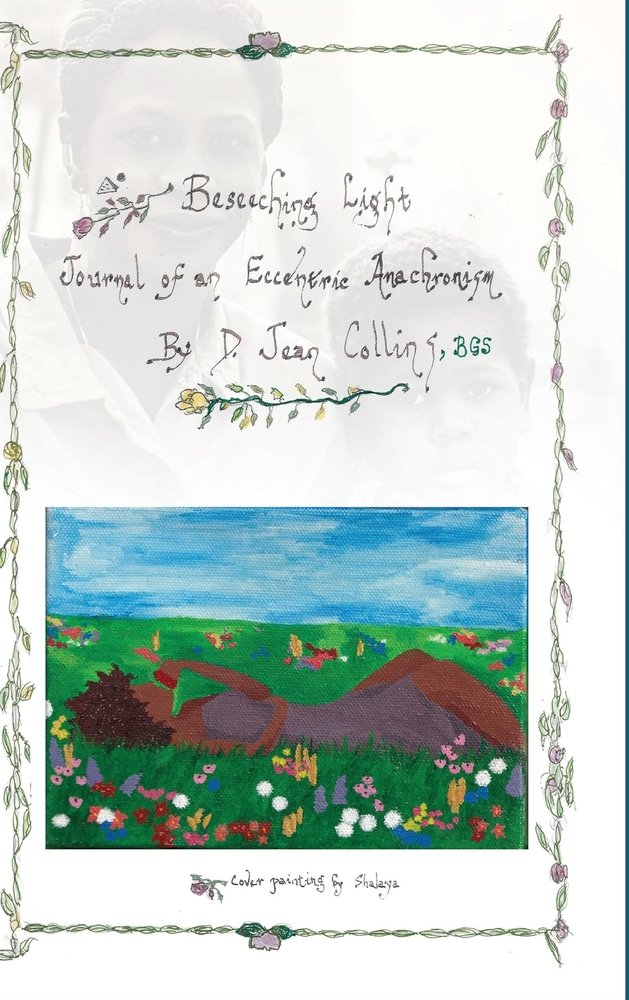 Beseeching Light
Journal of an Eccentric Anachronism
By D. Jean Collins, BGS
Cover painting by Shalaya